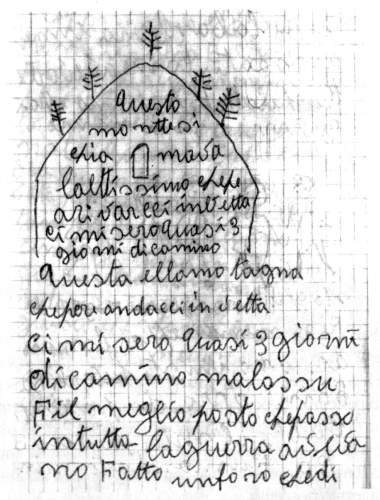 Questo
monttesi
chia mava
laltissimo chepe
arivarcci invetta
ci mi sero quasi 3
giorni dicamino
Questa ellamo tagna
chepere andacci in vetta
ci mi sero quasi 3 giorni
di camino malassu
F il meglio posto chepasso
intutto laguerra
no Fatto unforo chedi